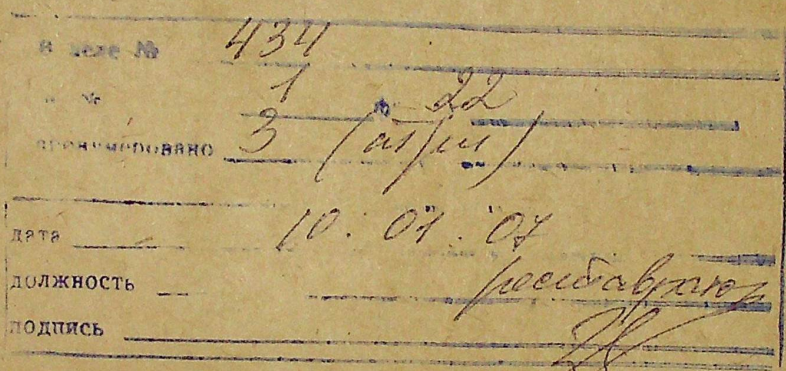 В деле № 434
№ 1 по 22
пронумеровано 3 (три)
дата 10. 01. 07
должность реставратор
подпись